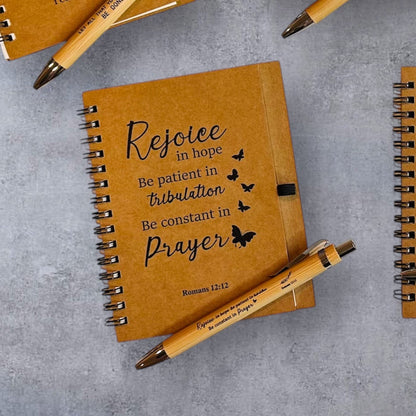 LET ALL THAT
BE DONE
Rejoice
in hope
Be patient in
tribulation
Be constant in
Prayer
Romans 12:12
Rejoice in hope Be patient in
Be constant in Prayer